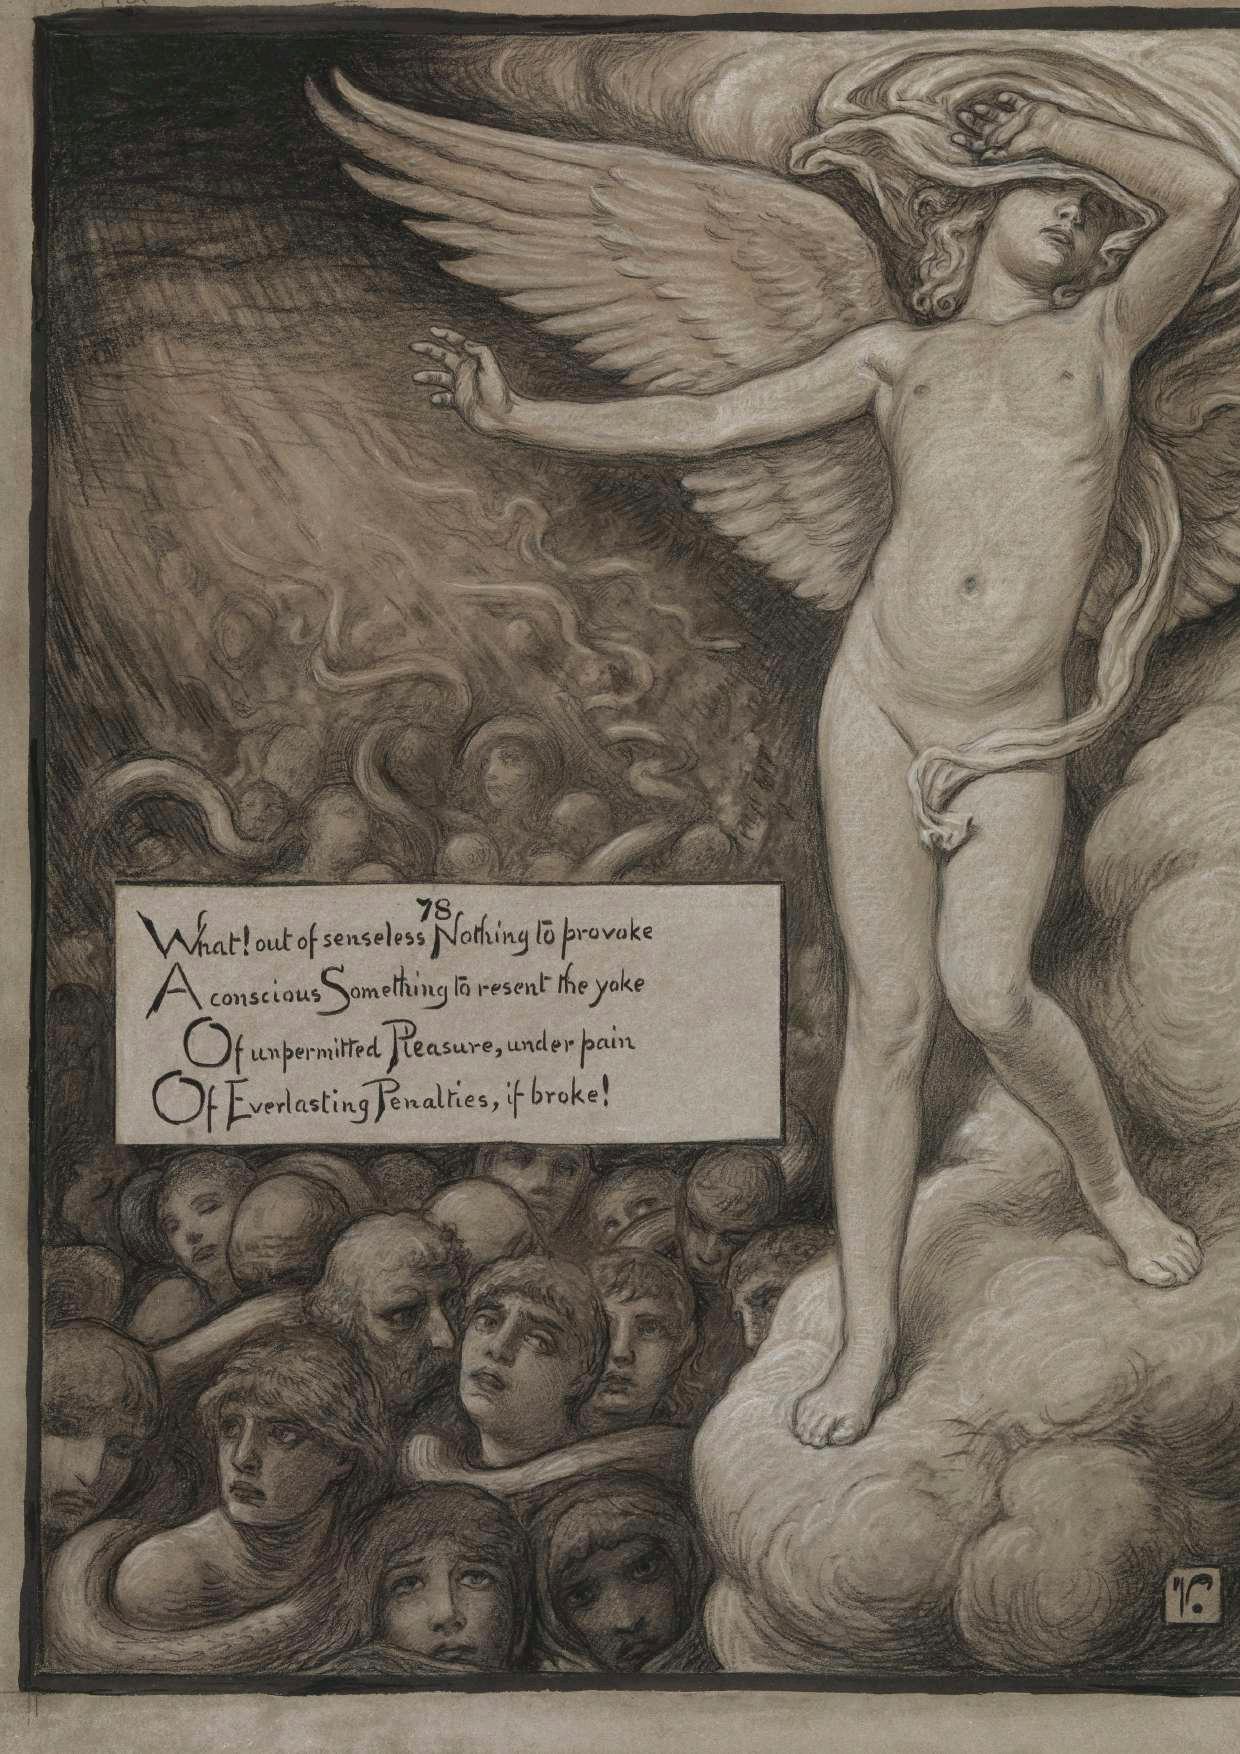 78
What! out of senseless Nothing to provoke
A conscious Something to resent the yoke
Of unpermitted Pleasure, under pain
Of Everlasting Penalties, if broke!
V.